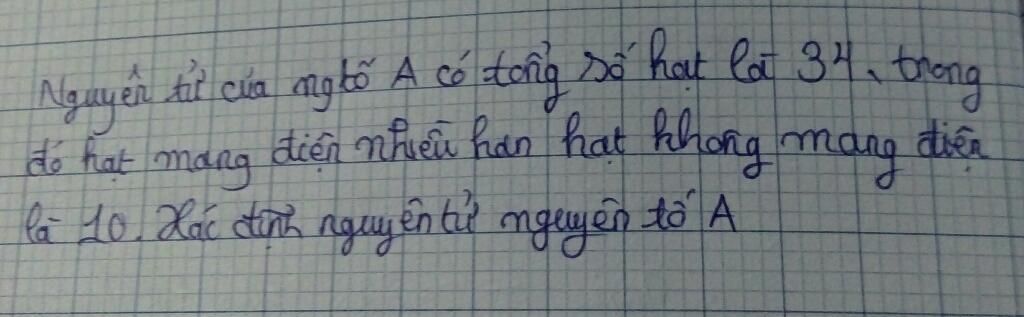 Nguyên tử của ngtố A có tổng số hạt là 34, trong
đó hạt mang điện nhiều hơn hạt không mang điện
là 10. Xác định nguyên tử nguyên tố A